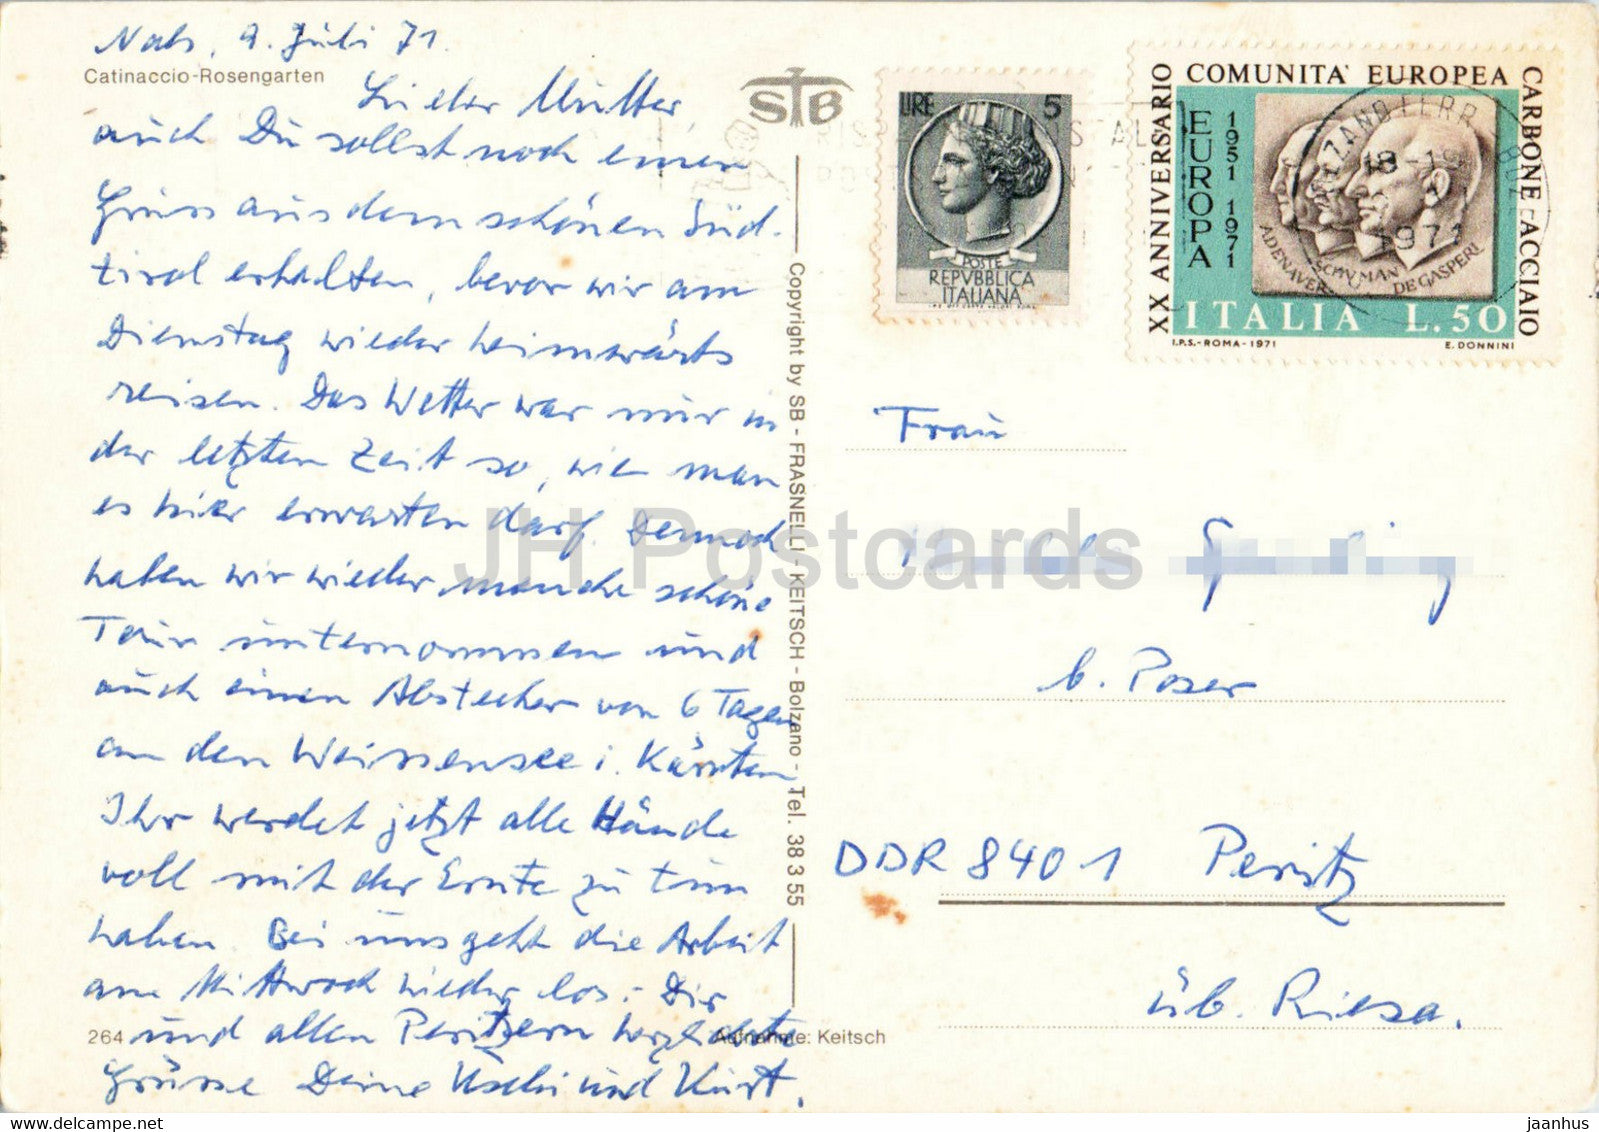 Nals, 9. Juli 71.
Catinaccio-Rosengarten
Liebe Mutter
auch Du sollst noch einen
Gruss aus dem schönen Süd-
tirol erhalten, bevor wir am
Dienstag wieder heimwärts
reisen. Das Wetter war nur in
der letzten Zeit so, wie man
es hier erwarten darf. Dennoch
haben wir wieder manche schöne
Tour unternommen und
auch einen Abstecher von 6 Tagen
an den Weissensee i. Kärnten
Ihr werdet jetzt alle Hände
voll mit der Ernte zu tun
haben. Bei uns geht die Arbeit
am Mittwoch wieder los. Dir
und allen Peritzern herzlichste
Grüsse Deine Uschi und Kurt.
264
Aufnahme: Keitsch
STB
Copyright by SB - FRASNELLI - KEITSCH - Bolzano - Tel. 38 3 55
LIRE 5
POSTE
REPVBBLICA
ITALIANA
XX ANNIVERSARIO COMUNITA' EUROPEA CARBONE ACCIAIO
EUROPA
1951 1971
ADENAVER SCHVMAN DE GASPERI
ITALIA L.50
I.P.S.-ROMA-1971 E. DONNINI
1971
Frau
b. Poser
DDR 8401 Peritz
üb. Riesa.
JH Postcards
www.delcampe.net
jaanhus